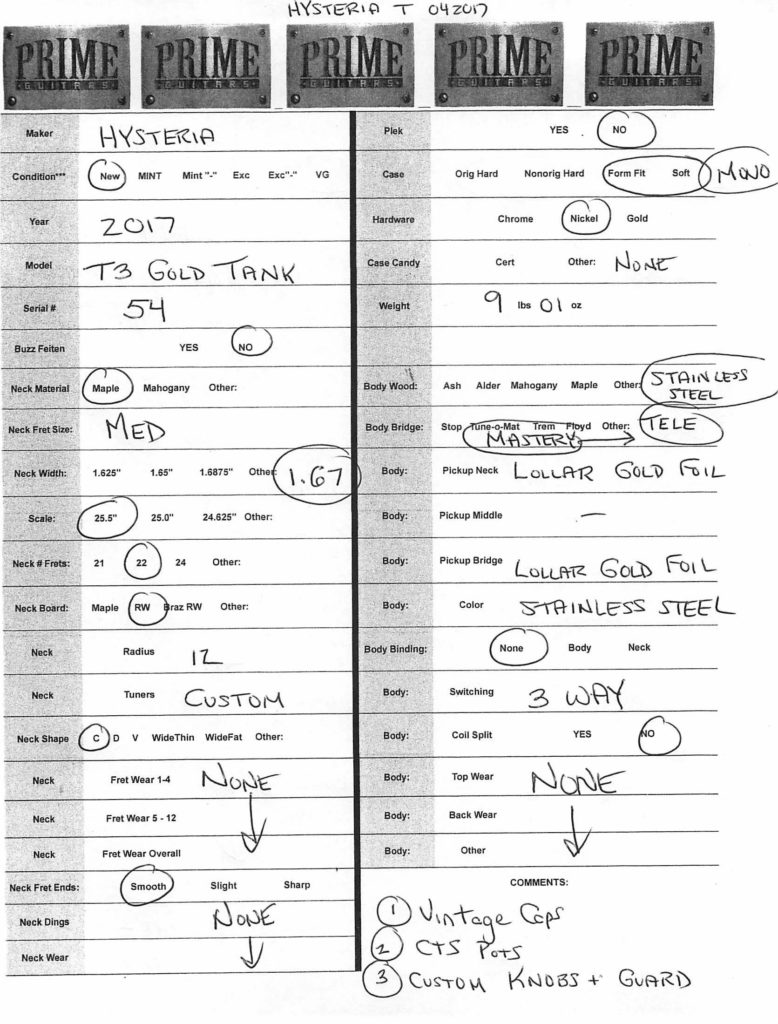 HYSTERIA T 042017
PRIME GUITARS PRIME GUITARS PRIME GUITARS PRIME GUITARS PRIME GUITARS
Maker HYSTERIA
Condition*** New MINT Mint "-" Exc Exc"-" VG
Year 2017
Model T3 GOLD TANK
Serial # 54
Buzz Feiten YES NO
Neck Material Maple Mahogany Other:
Neck Fret Size: MED
Neck Width: 1.625" 1.65" 1.6875" Other 1.67
Scale: 25.5" 25.0" 24.625" Other:
Neck # Frets: 21 22 24 Other:
Neck Board: Maple RW Braz RW Other:
Neck Radius 12
Neck Tuners CUSTOM
Neck Shape C D V WideThin WideFat Other:
Neck Fret Wear 1-4 NONE
Neck Fret Wear 5 - 12
Neck Fret Wear Overall
Neck Fret Ends: Smooth Slight Sharp
Neck Dings NONE
Neck Wear
Plek YES NO
Case Orig Hard Nonorig Hard Form Fit Soft MONO
Hardware Chrome Nickel Gold
Case Candy Cert Other: NONE
Weight 9 lbs 01 oz
Body Wood: Ash Alder Mahogany Maple Other: STAINLESS
STEEL
Body Bridge: Stop Tune-o-Mat Trem Floyd Other: TELE
MASTERY
Body: Pickup Neck LOLLAR GOLD FOIL
Body: Pickup Middle —
Body: Pickup Bridge LOLLAR GOLD FOIL
Body: Color STAINLESS STEEL
Body Binding: None Body Neck
Body: Switching 3 WAY
Body: Coil Split YES NO
Body: Top Wear NONE
Body: Back Wear
Body: Other
COMMENTS:
1 Vintage Caps
2 CTS POTS
3 CUSTOM KNOBS + GUARD